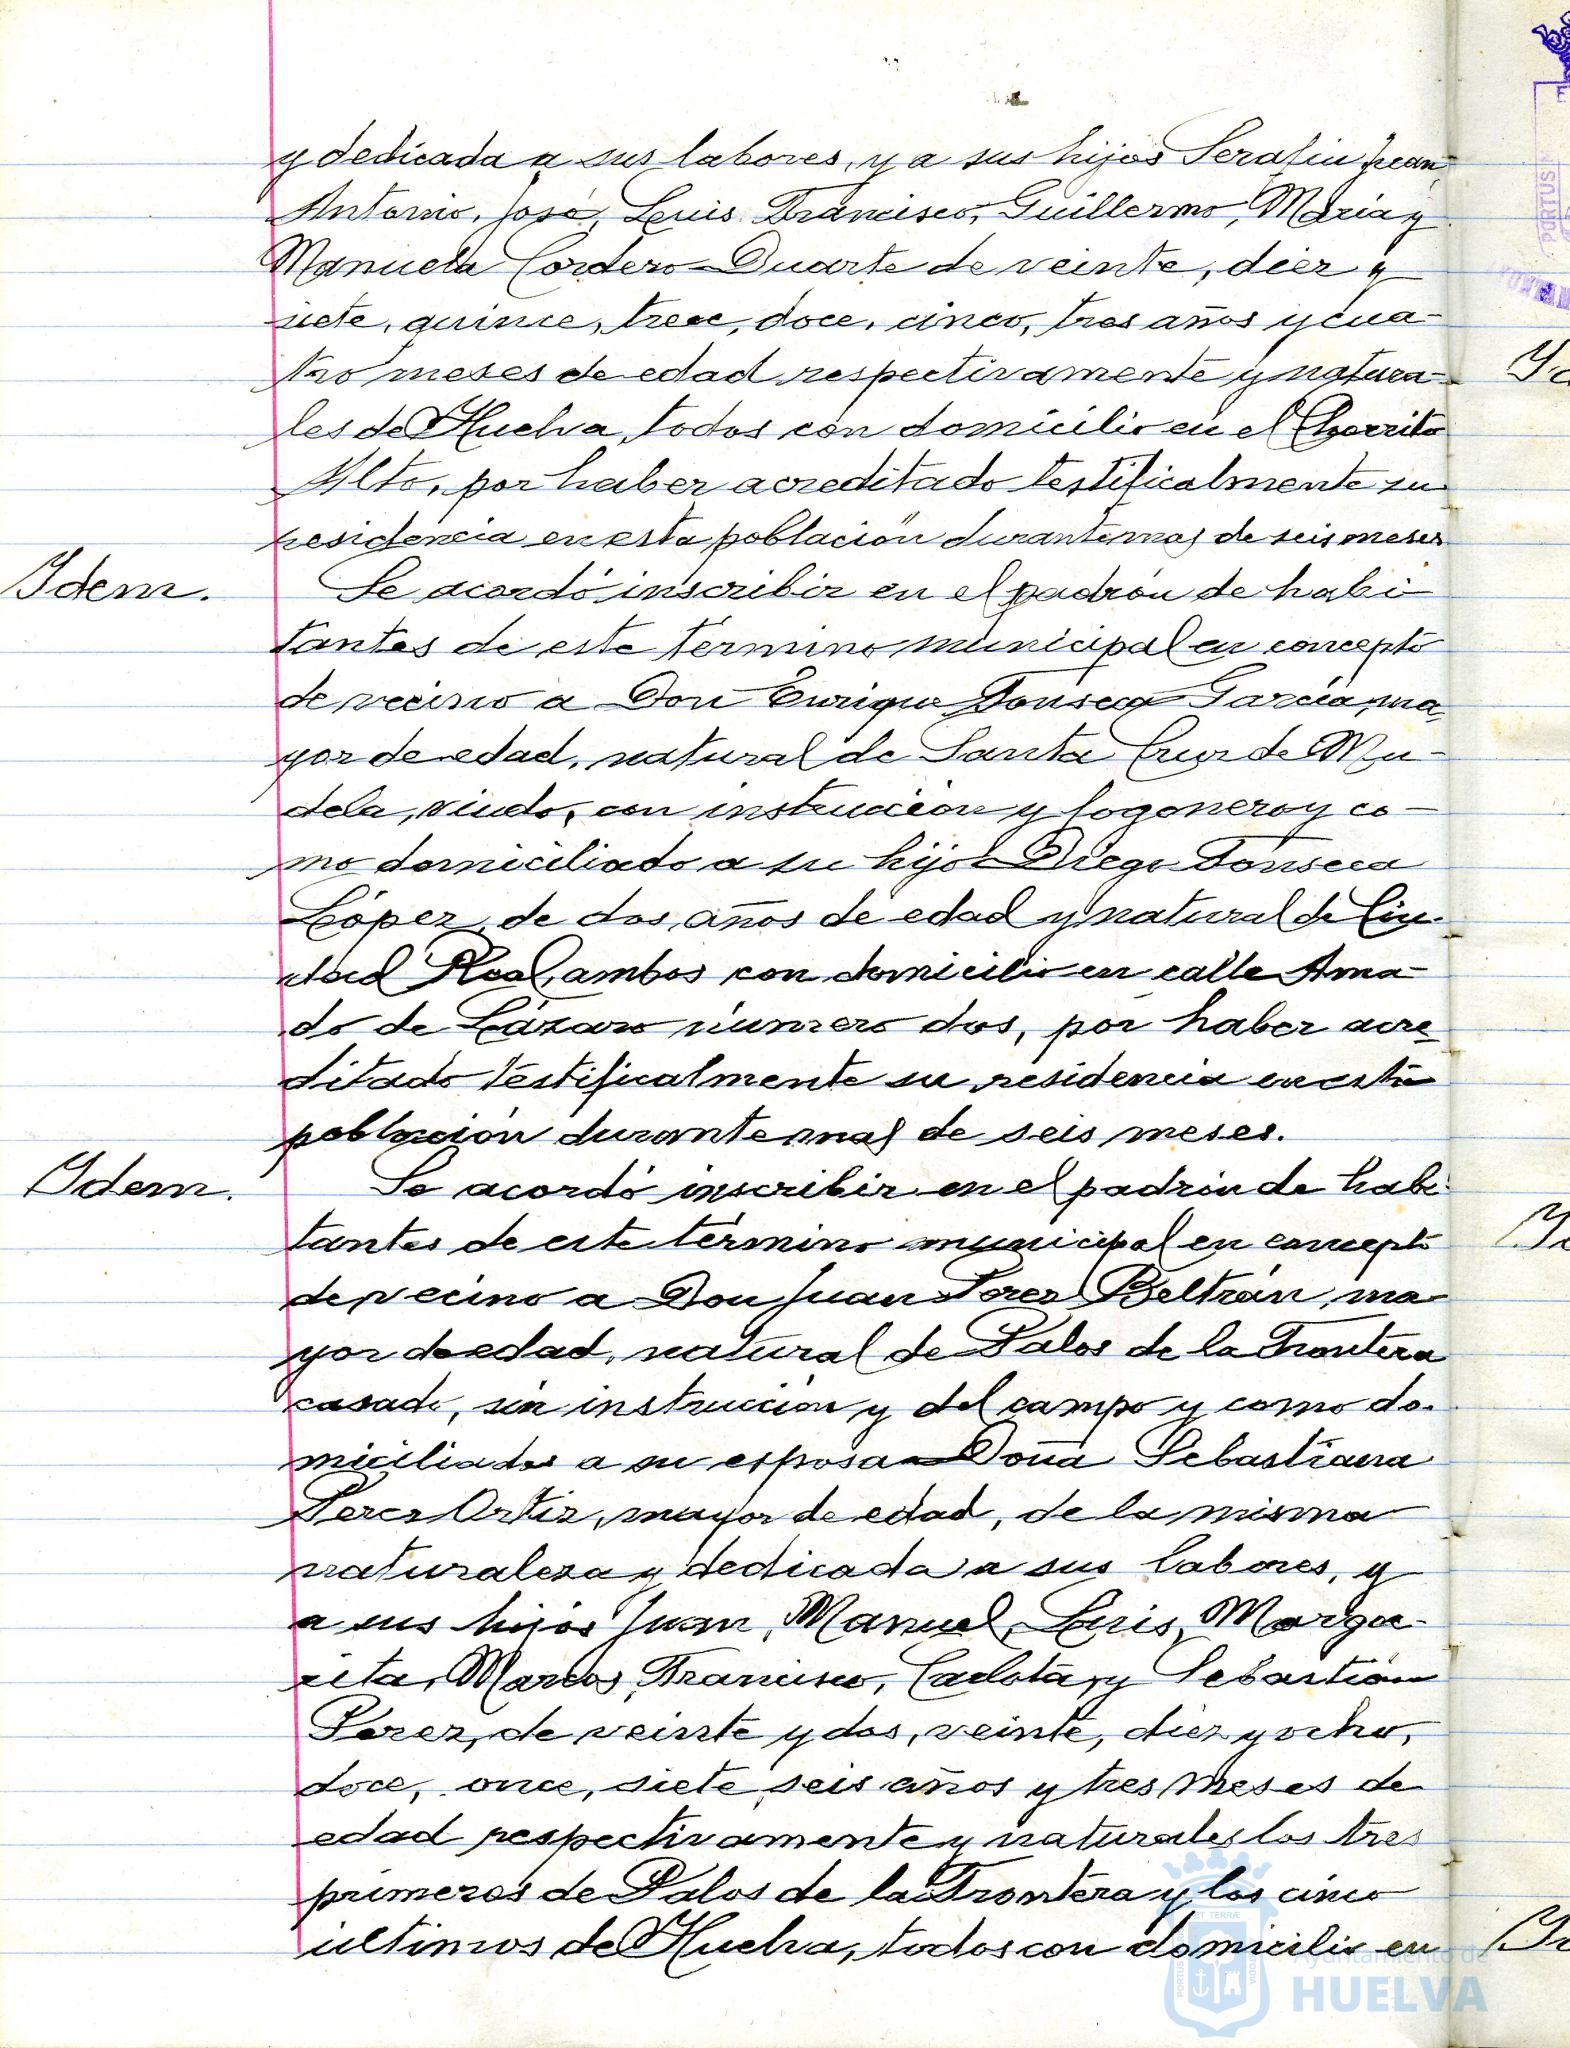 y dedicada a sus labores, y a sus hijos Serafin Juan
Antonio, José, Luis Francisco, Guillermo, Maria y
Manuela Cordero Duarte de veinte, diez y
siete, quince, trece, doce, cinco, tres años y cua-
tro meses de edad respectivamente y natura-
les de Huelva, todos con domicilio en el Chorrito
Alto, por haber acreditado testificalmente su
residencia en esta población durante mas de seis meses
Idem.
Se acordó inscribir en el padrón de habi-
tantes de este término municipal en concepto
de vecino a Don Enrique Fonseca García, ma-
yor de edad, natural de Santa Cruz de Mu-
dela, viudo, con instrucción y fogonero y co-
mo domiciliado a su hijo Diego Fonseca
López, de dos años de edad y natural de Ciu-
dad Real, ambos con domicilio en calle Ama-
do de Lázaro número dos, por haber acre-
ditado testificalmente su residencia en esta
población durante mas de seis meses.
Idem.
Se acordó inscribir en el padrón de habi-
tantes de este término municipal en concepto
de vecino a Don Juan Perez Beltrán, ma-
yor de edad, natural de Palos de la Frontera
casado, sin instrucción y del campo y como do-
miciliados a su esposa Doña Sebastiana
Perez Ortiz, mayor de edad, de la misma
naturaleza y dedicada a sus labores, y
a sus hijos Juan, Manuel, Luis, Marga-
rita, Marcos, Francisco, Carlota, y Sebastián
Perez, de veinte y dos, veinte, diez y ocho,
doce, once, siete, seis años y tres meses de
edad respectivamente y naturales los tres
primeros de Palos de la Frontera y los cinco
ultimos de Huelva, todos con domicilio en
Ayuntamiento de
HUELVA